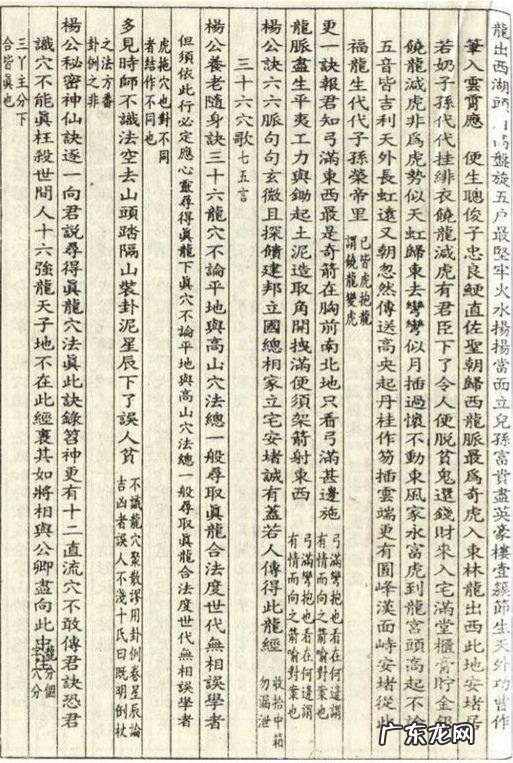 龍出西湖 高盤旋五戶最堅牢火水揚揚當面立兒孫富貴盡英豪樓壹簇師生天外功曹作
筆入雲霄應 便生聰俊子忠良鯁直佐聖朝歸西龍脈最為奇虎入東林龍出西此地安堵子
若奶子孫代代挂緋衣饒龍減虎有君臣下了令人便脫貧鬼還錢財來入宅滿堂櫃膏貯金銀
饒龍減虎非為虎勢似天虹歸東去彎彎似月插過懷不動東風家永富虎到龍宮頭高起不論
五音皆吉利天外長虹遠又朝忽然傳送高央起丹桂作笏插雲端更有圓峰漢面峙安堵從此
福龍生代代子孫榮帝里 已皆虎抱龍謂饒龍變虎
更一訣報君知弓滿東西最是奇箭在胸前南北地只看弓滿甚邊施 弓滿彎抱也看在何邊謂有情而向之箭喻對案也
龍脈盡生平爽工力與鋤起土泥造取角開拽滿便須架箭射東西 弓滿彎抱也看在何邊謂有情而向之箭喻對案也
楊公訣六六脈句句玄微且探饋建邦立國總相家立宅安堵誠有蓋若人傳得此龍經 收拾中箱勿漏泄
三十六穴歌七五言
楊公養老隨身訣三十六龍穴不論平地與高山穴法總一般尋取眞龍合法度世代無相誤學者
但須依此行必定應心靈尋得眞龍下眞穴不論平地與高山穴法總一般尋取眞龍合法度世代無相誤學者
虎拖穴也卦不同者結作不同也
多見時師不識法空去山頭踏隔山裝卦泥星辰下了誤人貧 不識龍穴聚散謬用卦例卷星辰論吉凶者誤人不淺十氏曰既明倒杖
之法方番卦例之非
楊公秘密神仙訣逐一向君說尋得眞龍穴法眞此訣錄苕神更有十二直流穴不敢傳君訣恐君
識穴不能眞枉殺世間人十六強龍天子地不在此經裏其如將相與公卿盡向此中
三丫主分下合皆眞也